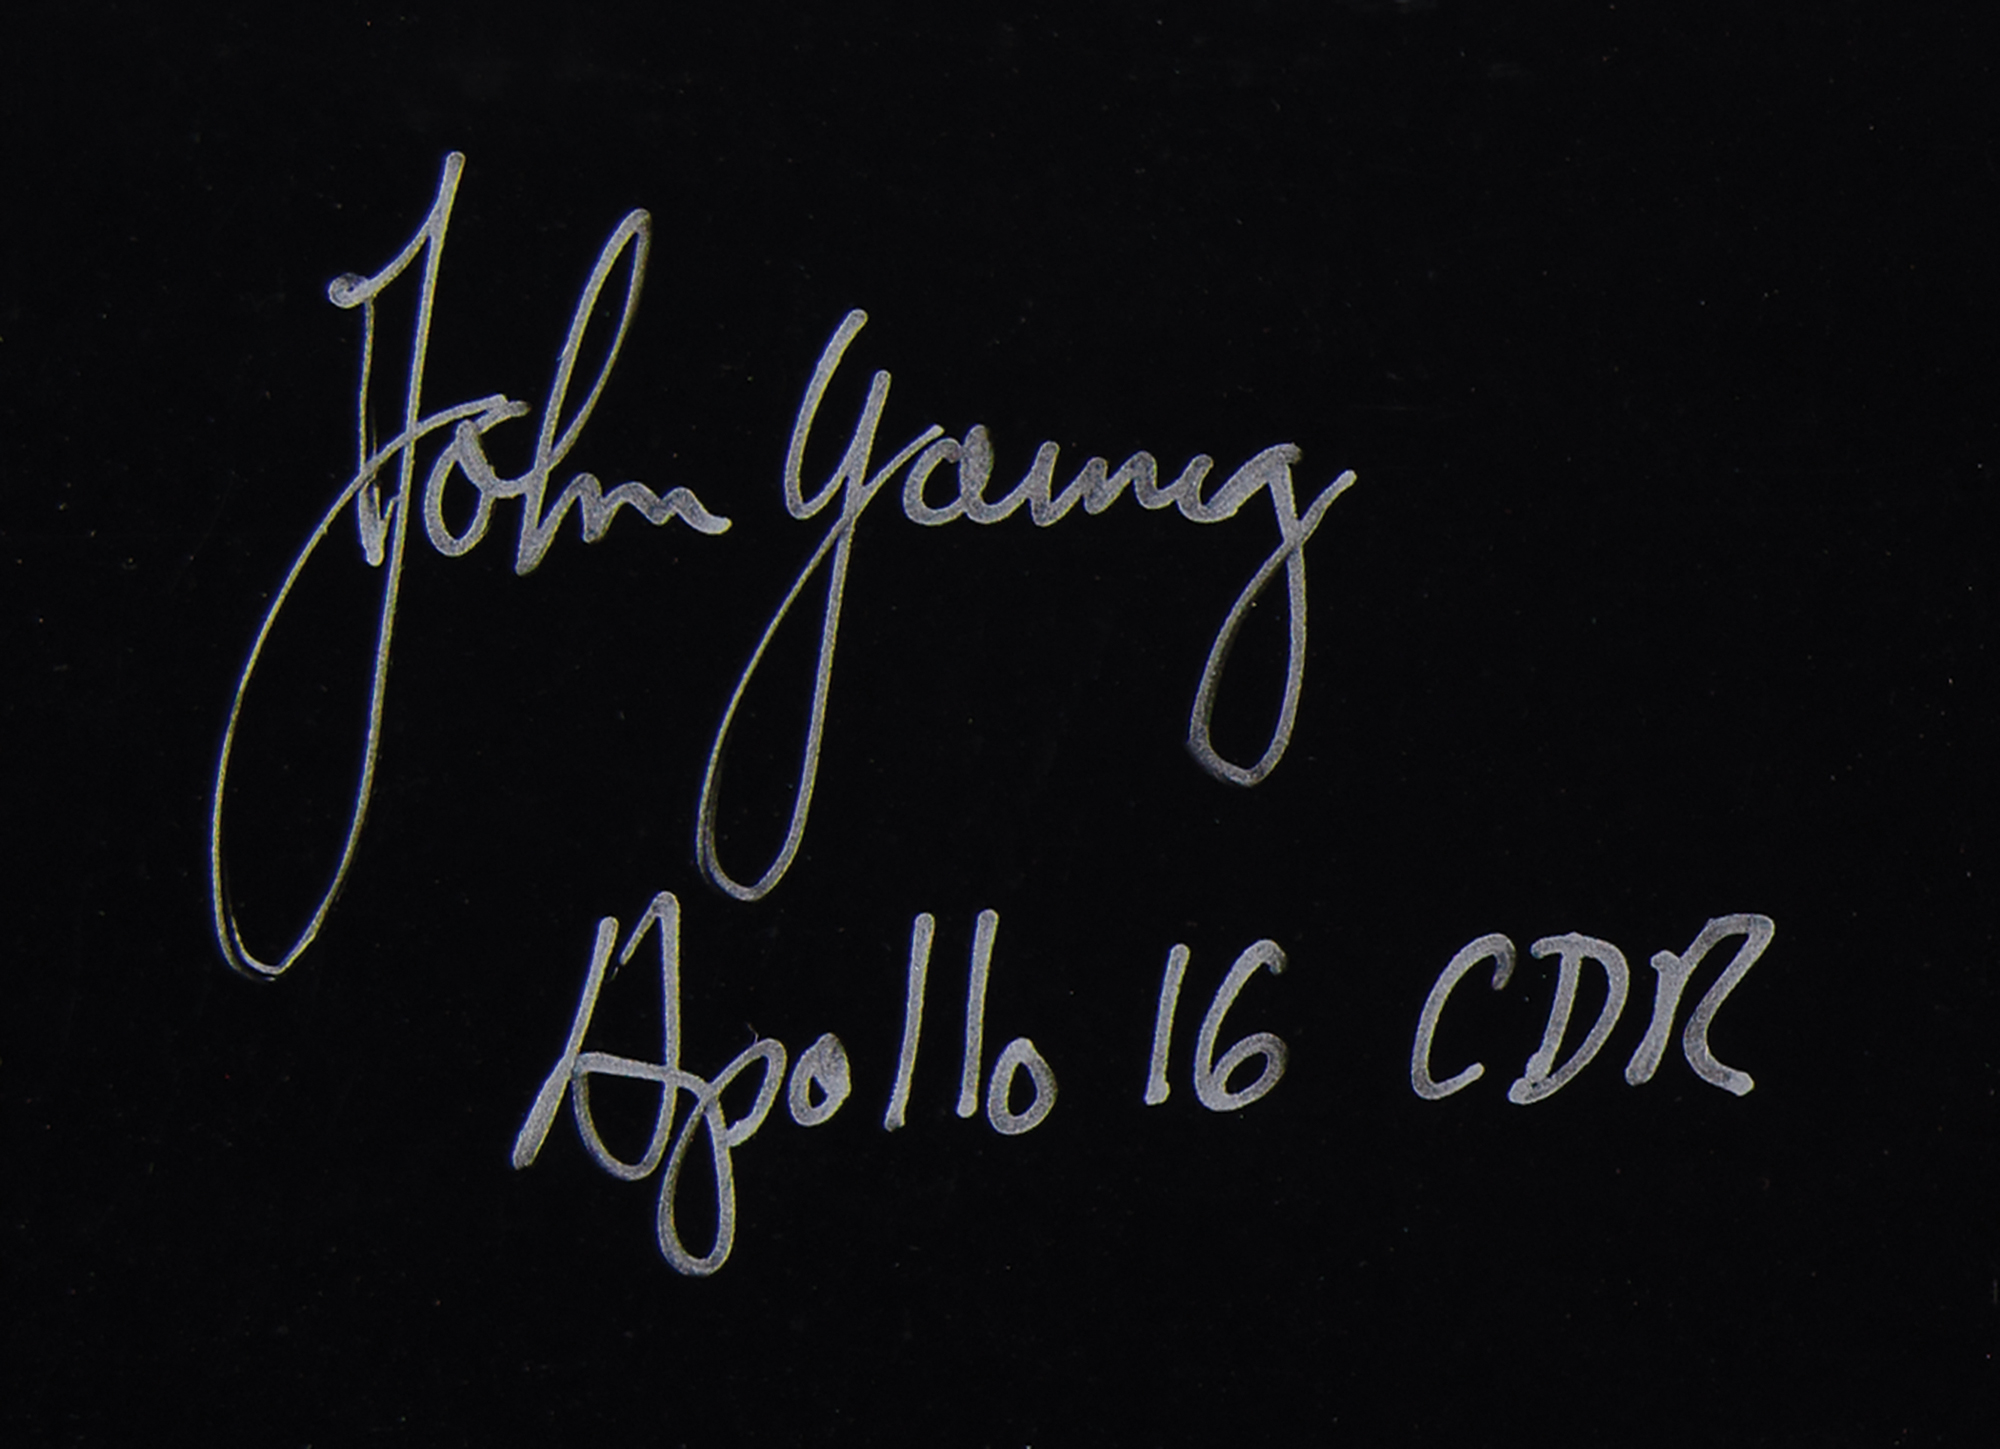 John Young
Apollo 16 CDR